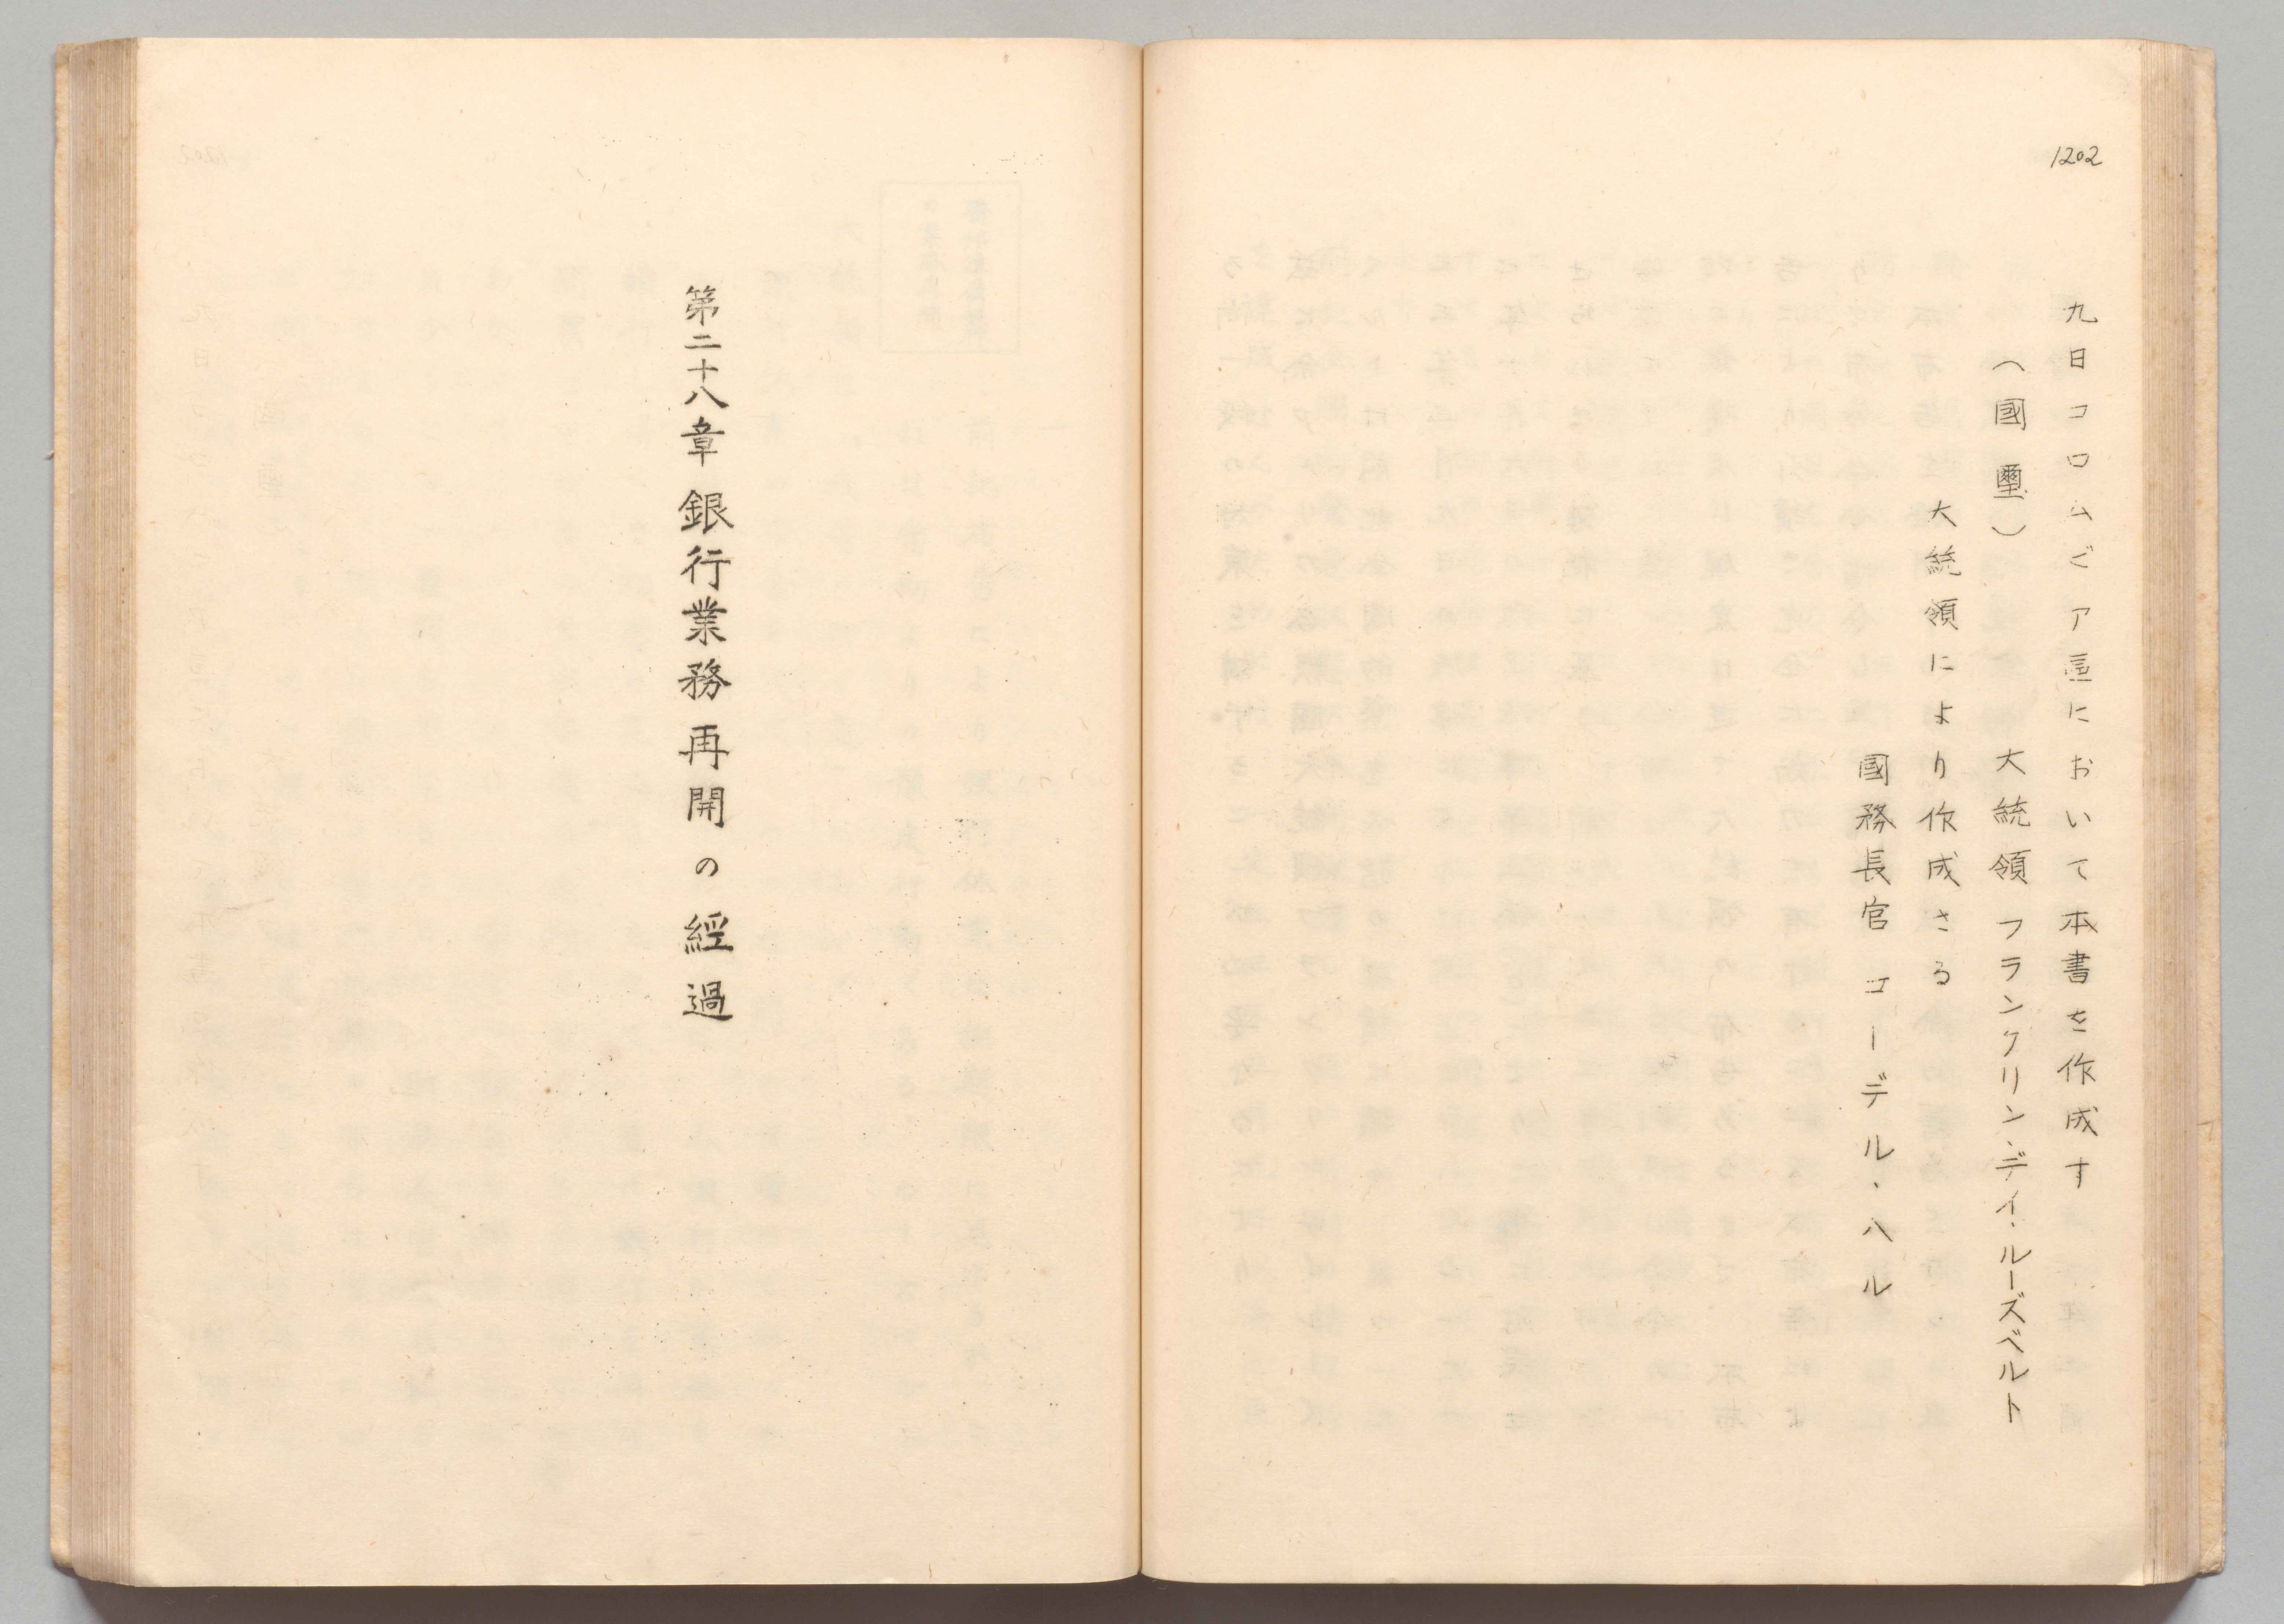 1202
九日コロムビア區において本書を作成す
(國璽)　大統領フランクリン・デイ・ルーズベルト
大統領により作成さる
國務長官　コーデル・ハル
第二十八章　銀行業務再開の經過